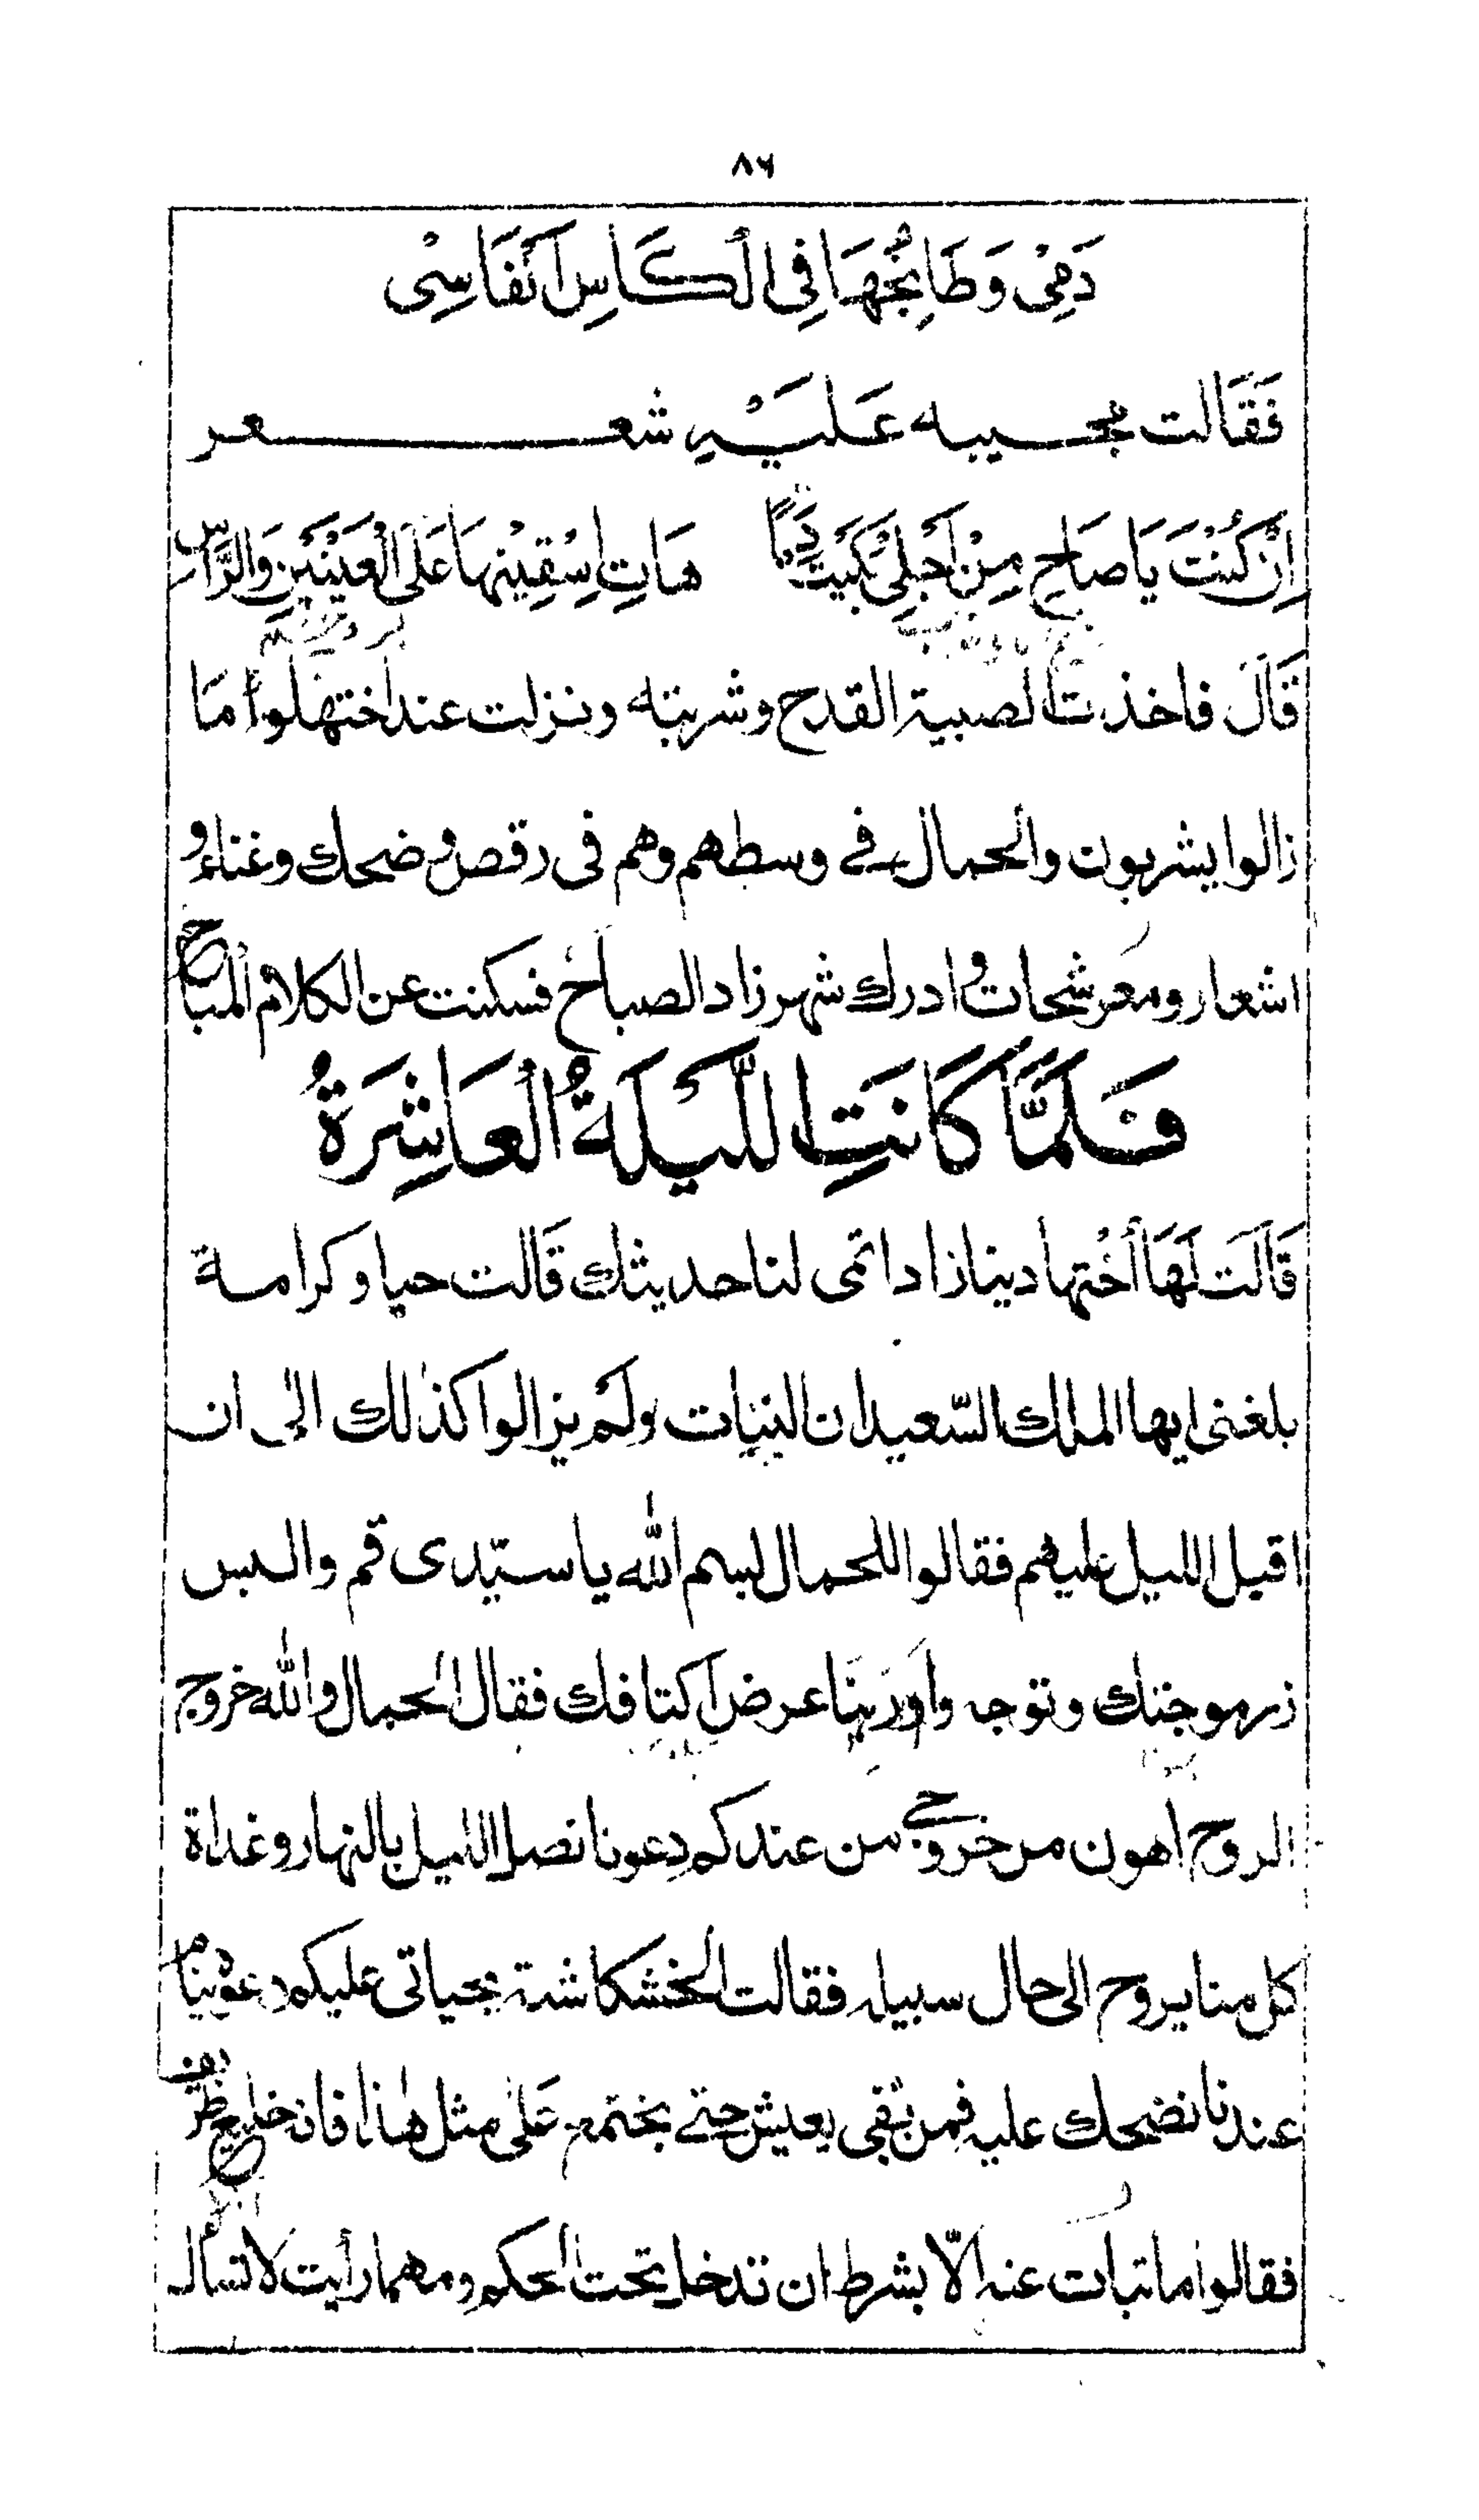 ٨٦
دَمِىْ وَطَابِخُهَا فِى الْكَاسِ اَنْفَاسِىْ
فَقَالَت مجيبه عَلَيْهِ شعر
اِنْ كُنْتَ يَا صَاحِ مِنْ اَجْلِىْ بَكَيْتَ دَمًا هَاتِ اِسْقِيْنِهَا عَلَى الْعَيْنَيْنِ وَالرَّاسِ
قَالَ فاخذت الصبية القدح وشربته ونزلت عند اختها ومَا
زالوا يشربون والحمال فے وسطهم وهم فى رقص وضحك وغناء و
اشعار وموشحات وادرك شهرزاد الصباح فسكتت عن الكلام المباح
فَلَمَّا كَانَتِ اللَّيْلَةُ الْعَاشِرَةُ
قَالَت لَهَا اُخْتها دينازاد اتمى لنا حديثك قَالت حبا وكرامة
بلغنى ايها الملك السّعيد ان البنات ولَمْ يزالوا كذٰلك الى ان
اقبل الليل عليهم فقالوا للحمال بسم الله يا سيّدى قم والبس
زرموجتك وتوجه وَاَوْرَيْنَا عرض اكتافك فقال الحمال والله خروج
الروح اهون من خروجى من عندكم دعونا نصل الليل بالنهار وغداة
كل منا يروح الى حال سبيله فقالت الخشكاشة بحياتى عليكم دعوْه ينَام
عندنا نضحك عليه فمن بَقِى يعيش حتے نجتمع عَلٰى مثل هٰذا فانه خليع ظريف
فقالوا ما تبات عندنا الّا بشرط ان تدخل تحت الحكم ومهما رأيت لا تسأل